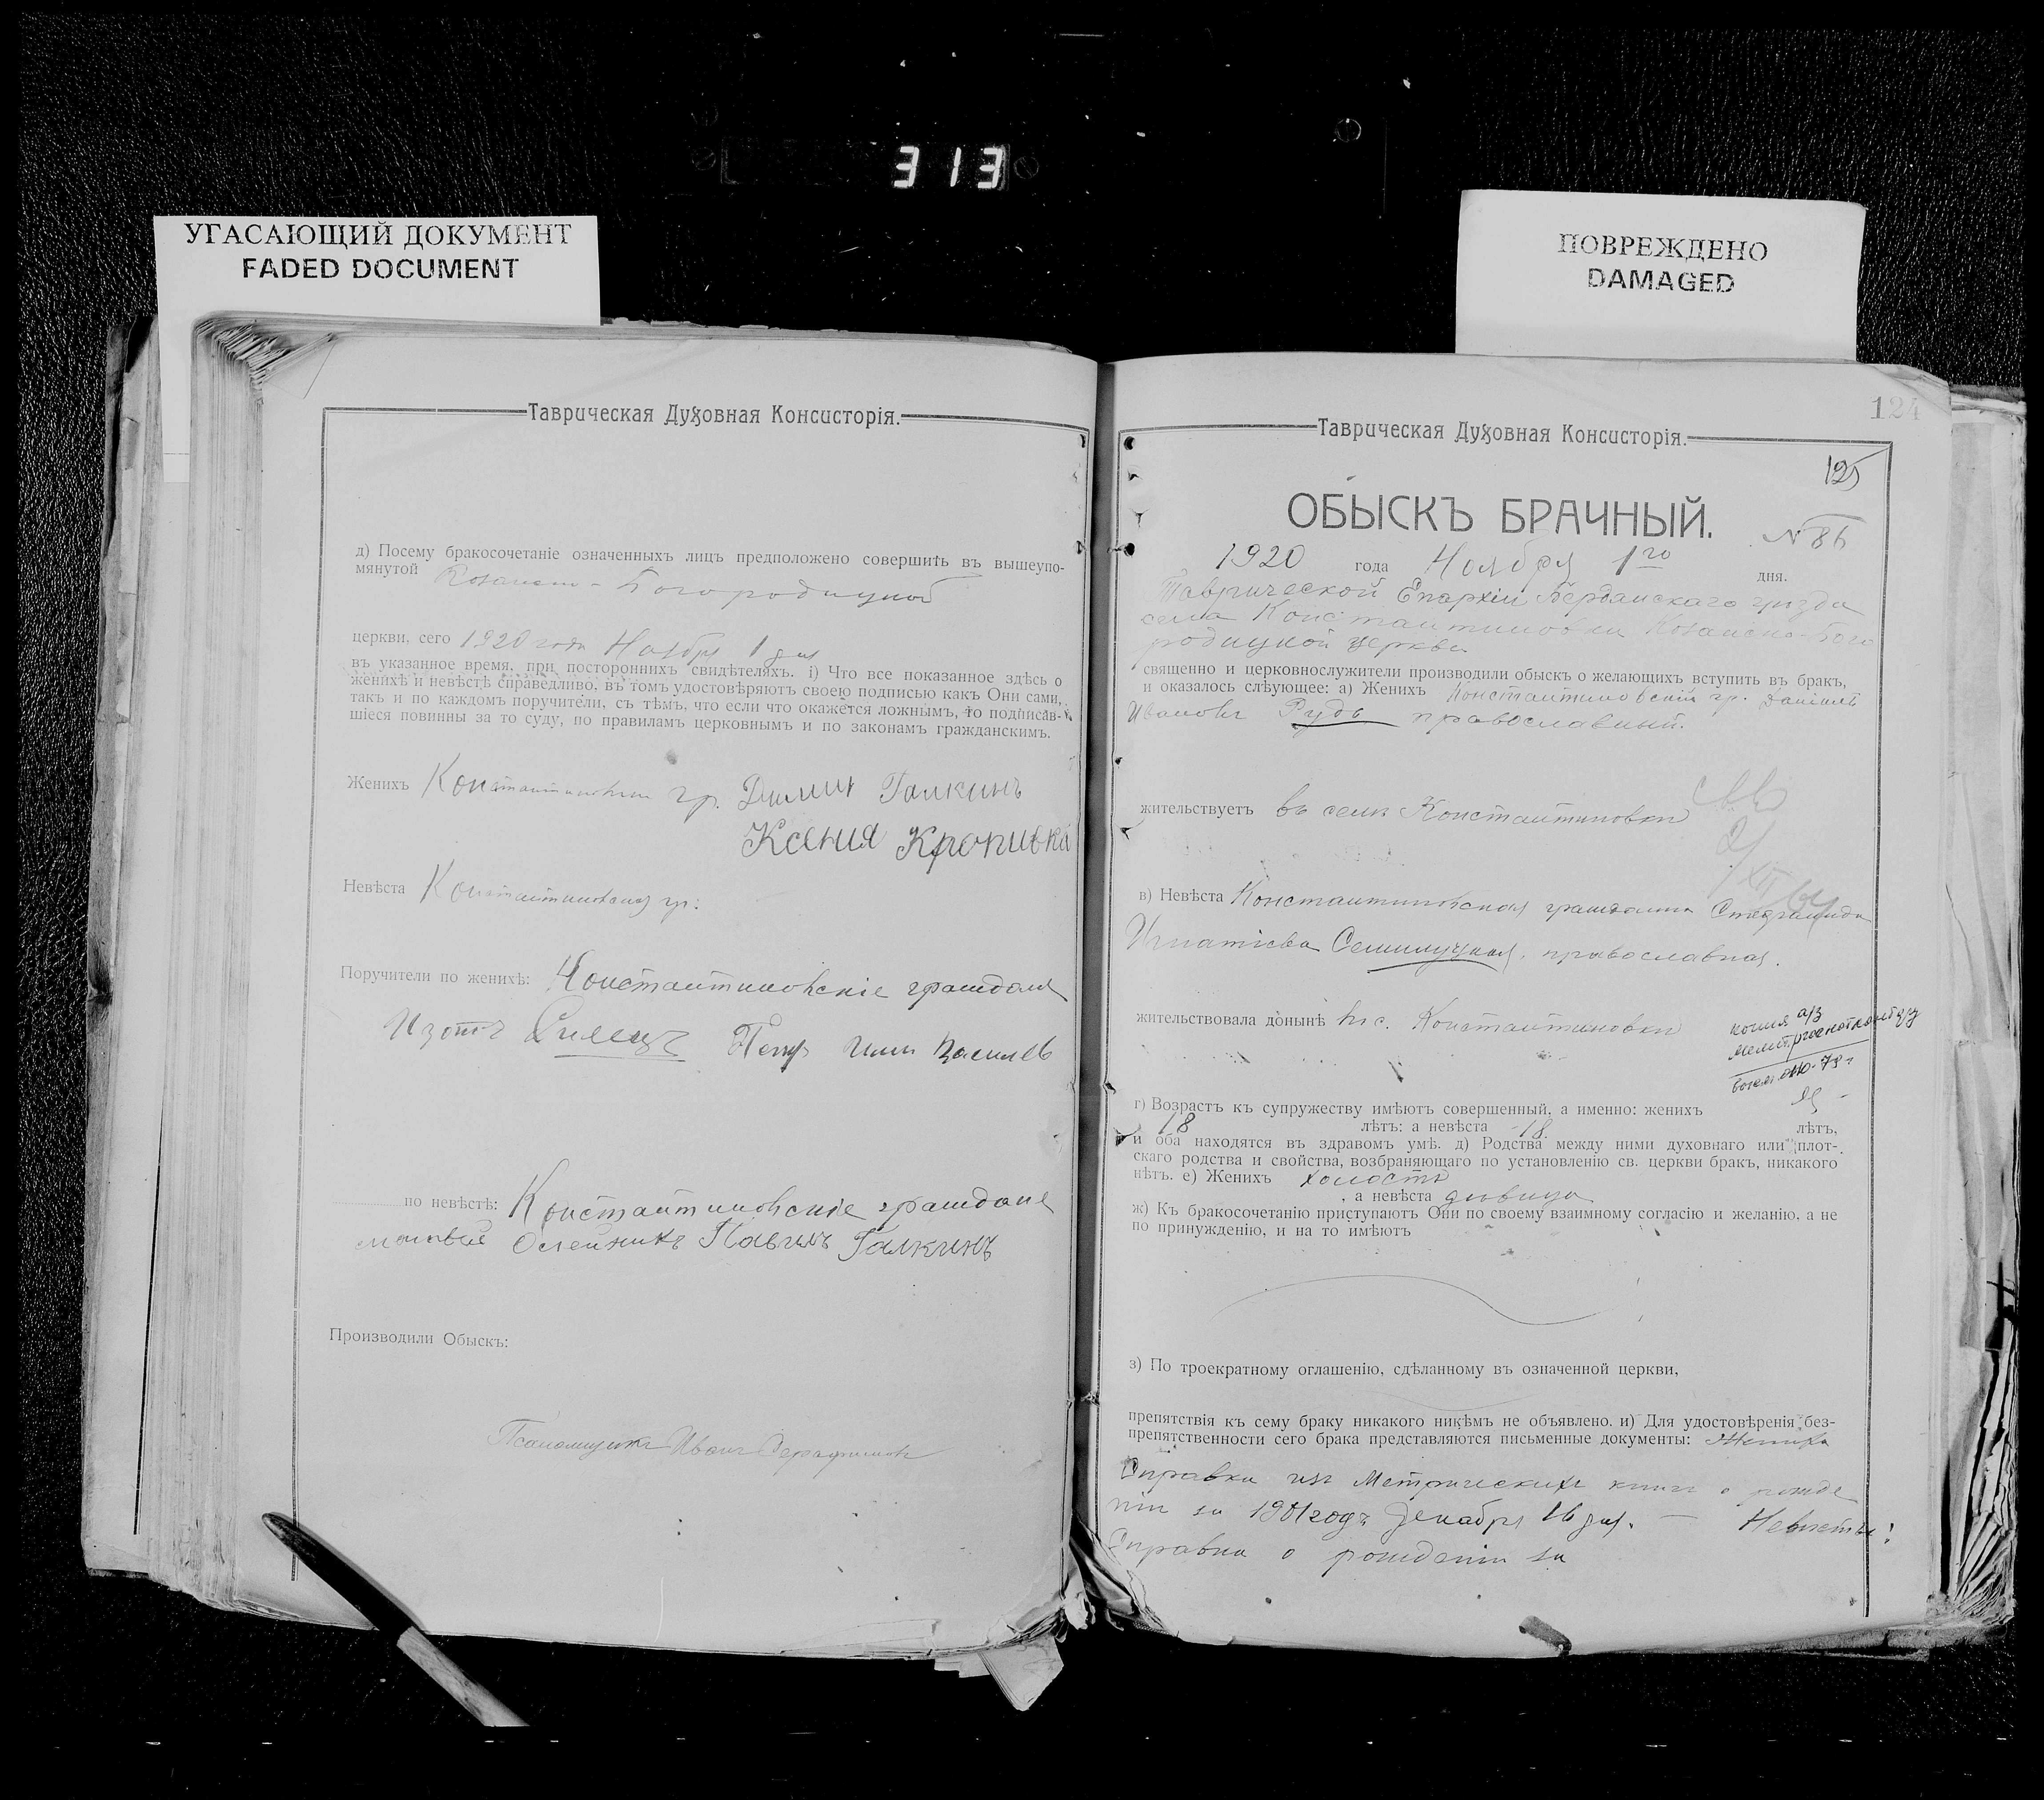 313
УГАСАЮЩИЙ ДОКУМЕНТ
FADED DOCUMENT
ПОВРЕЖДЕНО
DAMAGED
Таврическая Духовная Консисторія.
д) Посему бракосочетаніе означенныхъ лицъ предположено совершить въ вышеупо-
мянутой Козанско-Богородицкой
церкви, сего 1920 года Ноября 1 дня
въ указанное время, при постороннихъ свидѣтеляхъ. і) Что все показанное здѣсь о
женихѣ и невѣстѣ справедливо, въ томъ удостовѣряютъ своею подписью какъ Они сами,
такъ и по каждомъ поручители, съ тѣмъ, что если что окажется ложнымъ, то подписав-
шіеся повинны за то суду, по правиламъ церковнымъ и по законамъ гражданскимъ.
Женихъ Константиновскій гр. Галкинъ
Ксения Кропивка
Невѣста Константиновская гр:
Поручители по женихѣ: Константиновскіе граждане
Изотъ Петръ
по невѣстѣ: Константиновскіе граждане
Олейникъ Павелъ Галкинъ
Производили Обыскъ:
Псаломщикъ Иванъ Серафимовъ
124
Таврическая Духовная Консисторія.
125
ОБЫСКЪ БРАЧНЫЙ.
N 86
1920 года Ноября 1го дня.
Таврической Епархіи Бердянскаго уѣзда
села Константиновки Козанско-Бого
родицкой церкви
священно и церковнослужители производили обыскъ о желающихъ вступить въ бракъ,
и оказалось слѣующее: а) Женихъ Константиновскій гр. Даніилъ
Ивановъ Рудь православный.
жительствуетъ въ селѣ Константиновки
в) Невѣста Константиновская гражданка Степанида
Игнатіева Семилуцкая, православная.
жительствовала донынѣ въ с. Константиновки
копия а/з
г) Возрастъ къ супружеству имѣютъ совершенный, а именно: женихъ
18 лѣтъ: а невѣста 18. лѣтъ,
и оба находятся въ здравомъ умѣ. д) Родства между ними духовнаго или плот-
скаго родства и свойства, возбраняющаго по установленію св. церкви бракъ, никакого
нѣтъ. е) Женихъ холостъ
, а невѣста дѣвица
ж) Къ бракосочетанію приступаютъ Они по своему взаимному согласію и желанію, а не
по принужденію, и на то имѣютъ
з) По троекратному оглашенію, сдѣланному въ означенной церкви,
препятствія къ сему браку никакого никѣмъ не объявлено. и) Для удостовѣренія без-
препятственности сего брака представляются письменные документы: Жениха
Справка изъ Метрическихъ книгъ о рожде
ніи за 1901 годъ Декабря 16 дня. — Невѣсты:
Справка о рожденіи за